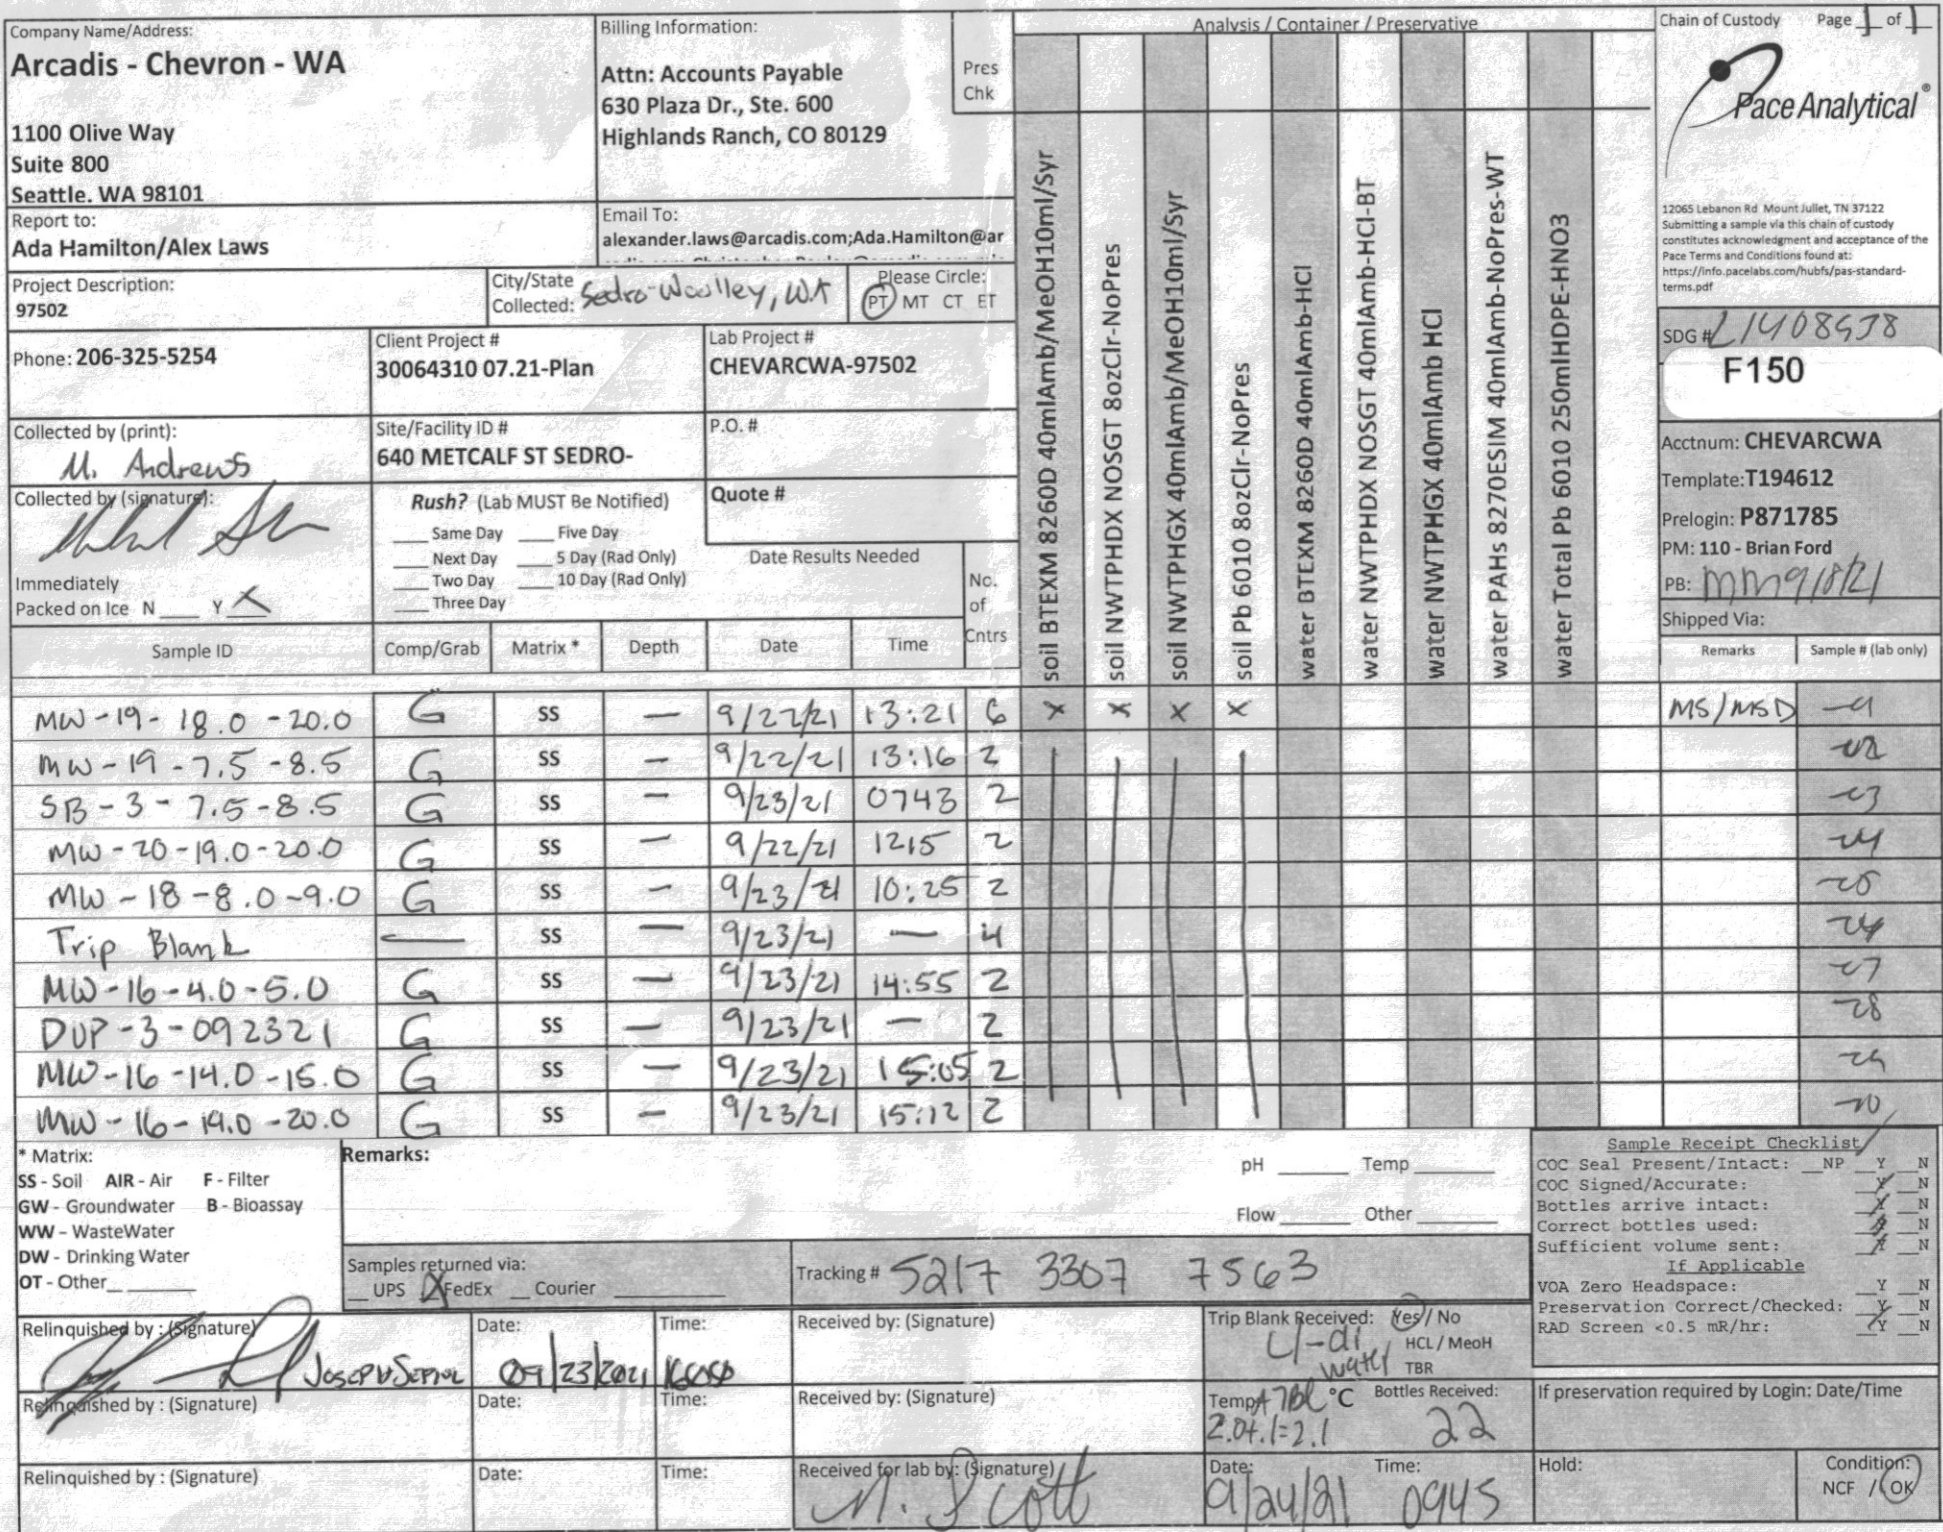 Company Name/Address:
Arcadis - Chevron - WA
1100 Olive Way
Suite 800
Seattle. WA 98101
Billing Information:
Attn: Accounts Payable
630 Plaza Dr., Ste. 600
Highlands Ranch, CO 80129
Pres
Chk
Analysis / Container / Preservative
Chain of Custody Page 1 of 1
Pace Analytical®
12065 Lebanon Rd Mount Juliet, TN 37122
Submitting a sample via this chain of custody
constitutes acknowledgment and acceptance of the
Pace Terms and Conditions found at:
https://info.pacelabs.com/hubfs/pas-standard-
terms.pdf
Report to:
Ada Hamilton/Alex Laws
Email To:
alexander.laws@arcadis.com;Ada.Hamilton@ar
Project Description:
97502
City/State
Collected: Sedro-Woolley, WA
Please Circle:
PT MT CT ET
Phone: 206-325-5254
Client Project #
30064310 07.21-Plan
Lab Project #
CHEVARCWA-97502
Collected by (print):
M. Andrews
Site/Facility ID #
640 METCALF ST SEDRO-
P.O. #
Collected by (signature):
Immediately
Packed on Ice N ___ Y X
Rush? (Lab MUST Be Notified)
___ Same Day ___ Five Day
___ Next Day ___ 5 Day (Rad Only)
___ Two Day ___ 10 Day (Rad Only)
___ Three Day
Quote #
Date Results Needed
No.
of
Cntrs
soil BTEXM 8260D 40mlAmb/MeOH10ml/Syr
soil NWTPHDX NOSGT 8ozClr-NoPres
soil NWTPHGX 40mlAmb/MeOH10ml/Syr
soil Pb 6010 8ozClr-NoPres
water BTEXM 8260D 40mlAmb-HCl
water NWTPHDX NOSGT 40mlAmb-HCl-BT
water NWTPHGX 40mlAmb HCl
water PAHs 8270ESIM 40mlAmb-NoPres-WT
water Total Pb 6010 250mlHDPE-HNO3
SDG # L1408538
F150
Acctnum: CHEVARCWA
Template:T194612
Prelogin: P871785
PM: 110 - Brian Ford
PB: MM 9/8/21
Shipped Via:
Sample ID Comp/Grab Matrix * Depth Date Time Remarks Sample # (lab only)
MW-19-18.0-20.0 G SS — 9/22/21 13:21 6 X X X X MS/MSD -01
MW-19-7.5-8.5 G SS — 9/22/21 13:16 2 -02
SB-3-7.5-8.5 G SS — 9/23/21 0743 2 -03
MW-20-19.0-20.0 G SS — 9/22/21 1215 2 -04
MW-18-8.0-9.0 G SS — 9/23/21 10:25 2 -05
Trip Blank — SS — 9/23/21 — 4 -06
MW-16-4.0-5.0 G SS — 9/23/21 14:55 2 -07
DUP-3-092321 G SS — 9/23/21 — 2 -08
MW-16-14.0-15.0 G SS — 9/23/21 15:05 2 -09
MW-16-19.0-20.0 G SS — 9/23/21 15:12 2 -10
* Matrix:
SS - Soil AIR - Air F - Filter
GW - Groundwater B - Bioassay
WW - WasteWater
DW - Drinking Water
OT - Other___
Remarks:
pH ___ Temp ___
Flow ___ Other ___
Samples returned via:
__ UPS X FedEx __ Courier ___
Tracking # 5217 3307 7563
Sample Receipt Checklist
COC Seal Present/Intact: __NP __Y __N
COC Signed/Accurate: Y __N
Bottles arrive intact: Y __N
Correct bottles used: Y __N
Sufficient volume sent: Y __N
If Applicable
VOA Zero Headspace: __Y __N
Preservation Correct/Checked: Y __N
RAD Screen <0.5 mR/hr: Y __N
Relinquished by : (Signature)
Date:
09/23/2021
Time:
Received by: (Signature)
Trip Blank Received: Yes / No
4-di
water
HCL / MeoH
TBR
Relinquished by : (Signature)
Date:
Time:
Received by: (Signature)
Temp: °C
2.0+.1=2.1
Bottles Received:
22
If preservation required by Login: Date/Time
Relinquished by : (Signature)
Date:
Time:
Received for lab by: (Signature)
N. Scott
Date:
9/24/21
Time:
0945
Hold:
Condition:
NCF / OK